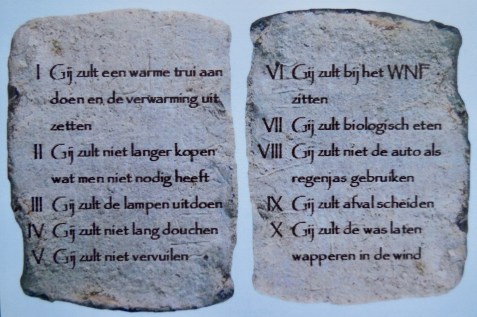 I Gij zult een warme trui aan
doen en de verwarming uit
zetten
II Gij zult niet langer kopen
wat men niet nodig heeft
III Gij zult de lampen uitdoen
IV Gij zult niet lang douchen
V Gij zult niet vervuilen
VI Gij zult bij het WNF
zitten
VII Gij zult biologisch eten
VIII Gij zult niet de auto als
regenjas gebruiken
IX Gij zult afval scheiden
X Gij zult de was laten
wapperen in de wind